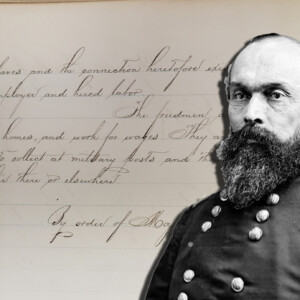 laves and the connection heretofore exi
mployer and hired labor.
The freedmen
homes, and work for wages. They a
to collect at military posts and th
there or elsewhere.
By order of Ma